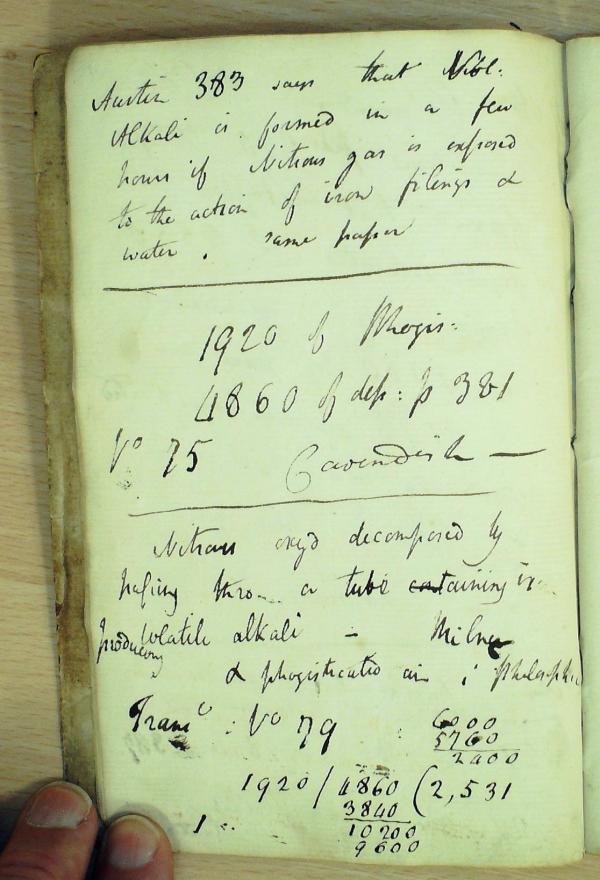 Austin 383 says that Vol:
Alkali is formed in a few
hours if Nitrous gas is exposed
to the action of iron filings &
water . same paper
1920 of Phogis:
4860 of dep: p 381
Vo 75 Cavendish —
Nitrous oxyd decomposed by
passing thro a tube containing ir
producing Volatile alkali – Milner
& phogisticatd air ; Philosophic
Transc : Vo 79
6000
5760
2400
1920 / 4860 ( 2,531
3840
1 10200
9600